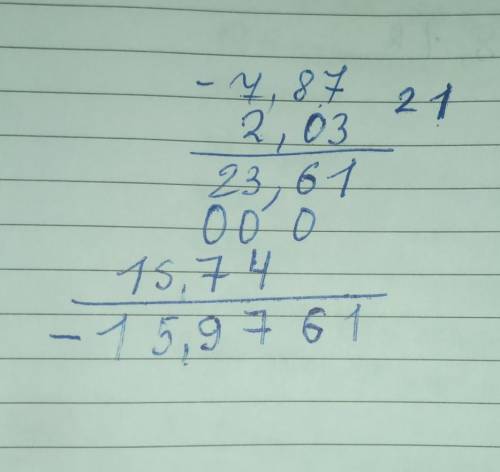 -7,87
2,03 21
23,61
00 0
15,74
-15,9761